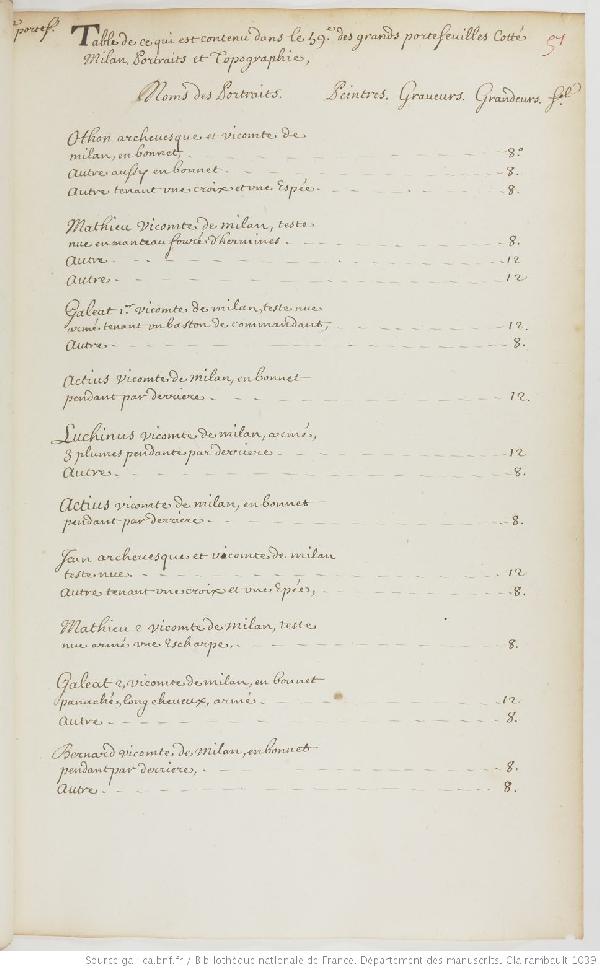 portef.
Table de ce qui est contenu dans le 59.e des grands portefeuilles Cotté
Milan, Portraits et Topographie,
57
Noms des Portraits. Peintres. Graveurs. Grandeurs. fol.
Othon archeuesque et vicomte de
milan, en bonnet, 8.o
Autre aussy en bonnet. 8.
Autre tenant vne croix et vne Espée. 8.
Mathieu Vicomte de milan, teste
nue en manteau fouré d'hermines. 8.
Autre. 12
Autre. 12
Galeat 1.er vicomte de milan, teste nue
armé tenant vn baston de commandant, 12.
Autre. 8.
Actius Vicomte de Milan, en bonnet
pendant par derriere. 12.
Luchinus vicomte de milan, armé,
3 plumes pendante par derriere. 12
Autre. 8.
Actius vicomte de milan, en bonnet
pendant par derriere. 8.
Jean archeuesque et vicomte de milan
teste nue. 12
Autre tenant vne croix et vne Epée, 8.
Mathieu 2 vicomte de Milan, teste
nue armé vne Escharpe. 8.
Galeat 2, vicomte de milan, en bonnet
panaché, long cheueux, armé. 12.
Autre 8.
Bernard vicomte de Milan, en bonnet
pendant par derriere, 8.
Autre. 8.
Source gallica.bnf.fr / Bibliothèque nationale de France. Département des manuscrits. Clairambault 1039